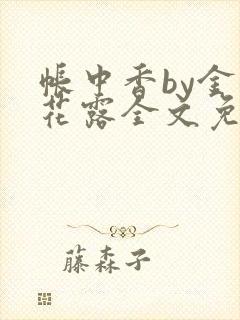 帐中香by金
花露全文免
藤森子